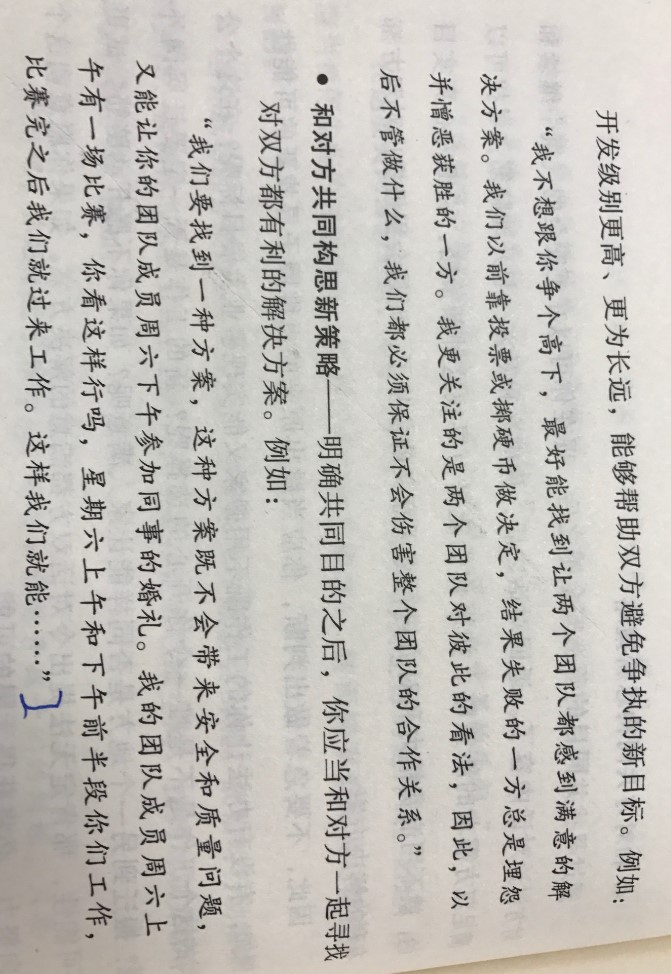 开发级别更高、更为长远，能够帮助双方避免争执的新目标。例如：
“我不想跟你争个高下，最好能找到让两个团队都感到满意的解
决方案。我们以前靠投票或掷硬币做决定，结果失败的一方总是埋怨
并憎恶获胜的一方。我更关注的是两个团队对彼此的看法，因此，以
后不管做什么，我们都必须保证不会伤害整个团队的合作关系。”
• 和对方共同构思新策略——明确共同目的之后，你应当和对方一起寻找
对双方都有利的解决方案。例如：
“我们要找到一种方案，这种方案既不会带来安全和质量问题，
又能让你的团队成员周六下午参加同事的婚礼。我的团队成员周六上
午有一场比赛，你看这样行吗，星期六上午和下午前半段你们工作，
比赛完之后我们就过来工作。这样我们就能……”